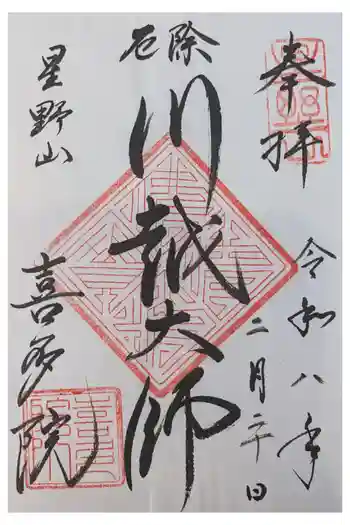 奉拝
令和八年
二月二十日
厄除
川越大師
星野山
喜多院